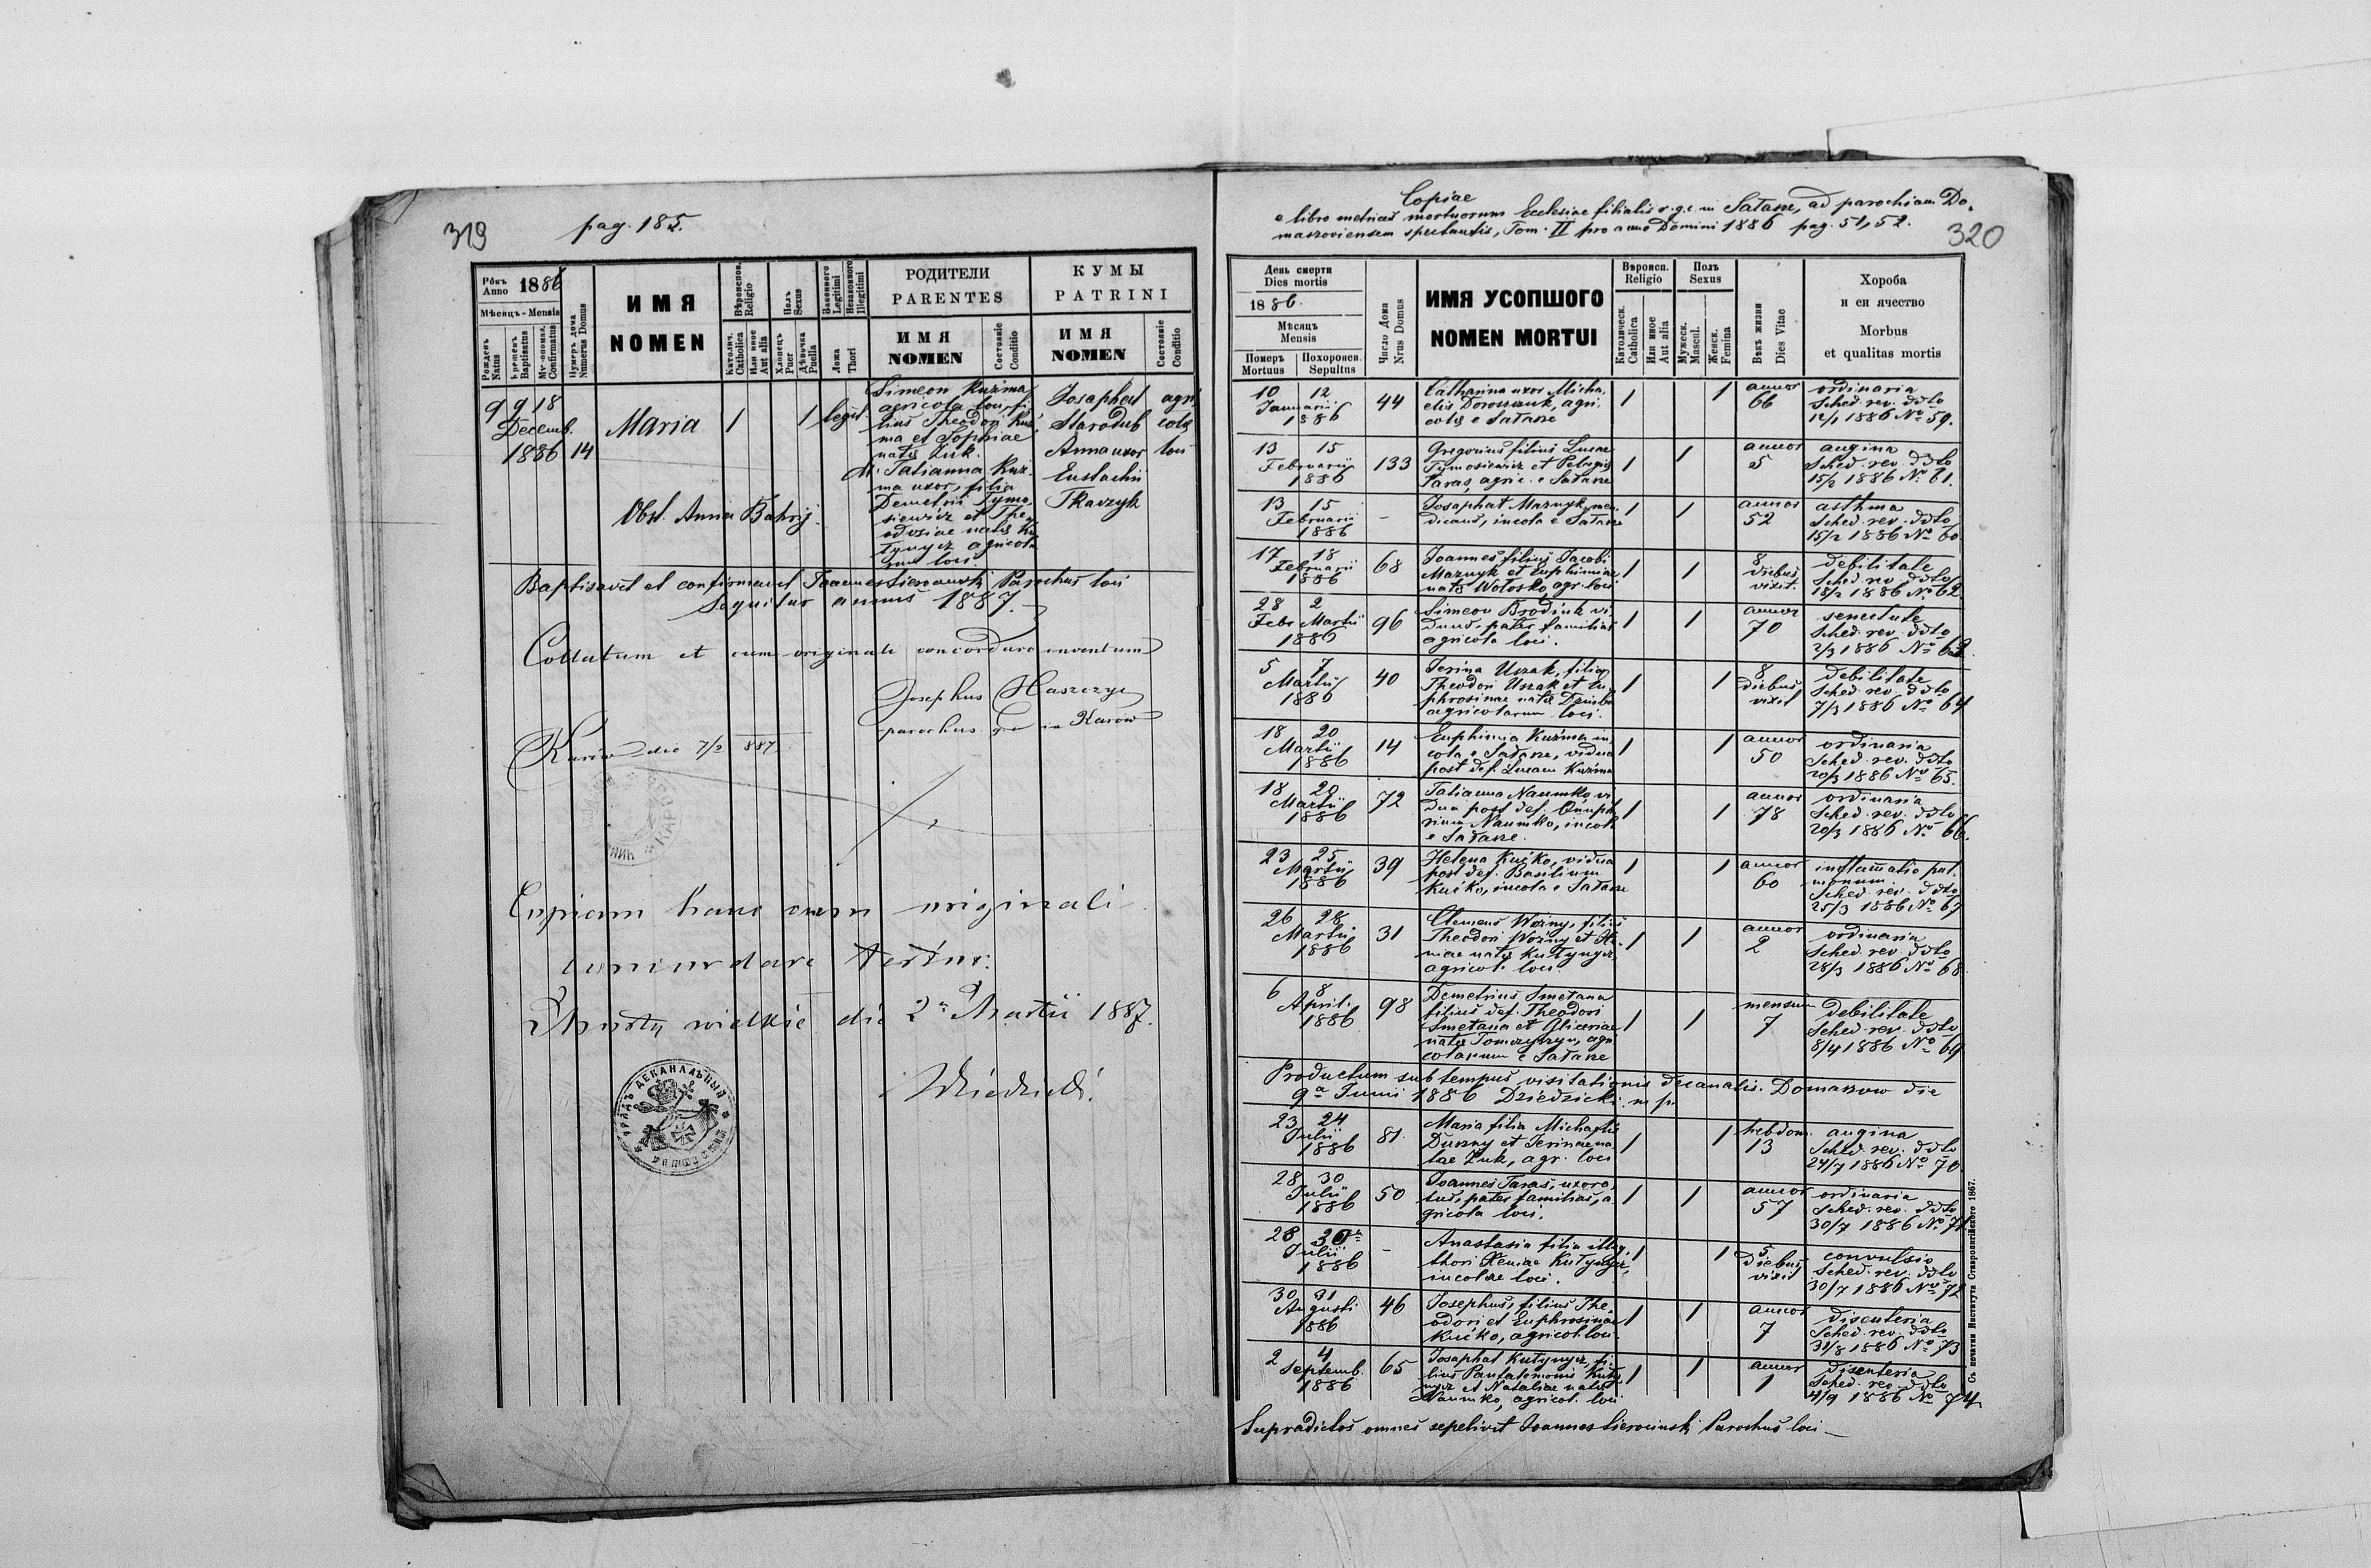 319
pag. 185.
Рôкъ Anno 1886
Мѣсяць - Mensis
Рожденъ Natus
Baptisatus
Confirmatus
Нумеръ дома Numerus Domus
ИМЯ
NOMEN
Religio
Католич. Catholica
Или иное Aut alia
Полъ Sexus
Хлопецъ Puer
Дѣвочка Puella
Законного Legitimi
Незаконного Illegitimi
Ложа Thori
РОДИТЕЛИ
PARENTES
ИМЯ
NOMEN
Состояніе Conditio
КУМЫ
PATRINI
ИМЯ
NOMEN
Состояніе Conditio
9 9 18
Decemb.
1886 14
Maria 1 1 legit.
Simeon Kuźma
agricola loci, fi
lius Theodori Kuź
ma et Sophiae
natae Żuk.
M. Tatianna Kuź
ma uxor, filia
Demetrii Tymo
siewicz et The
odosiae natae Ku
tynycz agricola
rum loci.
Josaphat agri
Starodub colae
Anna uxor loci
Eustachii
Tkaczyk
Obst. Anna Bahrij.
Baptisavit et confirmavit Joannes Sierocinski Parochus loci
Sequitur annus 1887.
Collatum et cum originali concordare inventum
Josephus Haszczyc
parochus gr in Karów
Karów die 7/2 887
Copiam hanc cum originali
concordare testor.
Mosty wielkie die 2a Martii 1887.
Dziedzicki
УРЯДЪ ДЕКАНАЛЬНЫЙ
Copiae
e libro metrices mortuorum Ecclesiae filialis r. g. c. in Sałasze, ad parochiam Do
maszoviensem spectantis, Tom. II pro anno Domini 1886 pag. 51, 52.
320
День смерти
Dies mortis
1886.
Мѣсяць
Mensis
Померъ Mortuus
Похоронен. Sepultus
Число Дома
Nrus Domus
ИМЯ УСОПШОГО
NOMEN MORTUI
Вѣроисп.
Religio
Католическ. Catholica
Или иное Aut alia
Полъ
Sexus
Мужеск. Mascul.
Женск. Femina
Вѣкъ жизни
Dies Vitae
Хороба
и еи ячество
Morbus
et qualitas mortis
10 12
Januarii
1886
44
Catharina uxor Micha
elis Doroszczuk, agri
colae e Sałasze
1 1
annor
66
ordinaria
Sched. rev. ddto
12/1 1886 No 59.
13 15
Februarii
1886
133
Gregorius filius Lucae
Tymosiewicz et Pelagiae
Taras, agric. e Sałasze
1 1
annor
5
angina
Sched. rev. ddto
15/2 1886 No 61.
13 15
Februarii
1886
-
Josaphat Maznyk, men
dicans, incola e Sałasze
1 1
annor
52
asthma
Sched. rev. ddto
15/2 1886 No 60
17 18
Februarii
1886
68
Joannes filius Jacobi
Maznyk et Euphimiae
natae Wołosko, agr. loci
1 1
8
diebus
vixit.
debilitate
Sched. rev. ddto
18/2 1886 No 62.
28 2
Febr Martii
1886
96
Simeon Brodiuk vi
duus, pater familias
agricola loci.
1 1
annor
70
senectute
Sched. rev. ddto
2/3 1886 No 63.
5 7
Martii
1886
40
Ierina Uszak, filia
Theodori Uszak et Eu
phrosinae natae Dziuba
agricolarum loci.
1 1
8
diebus
vixit
debilitate
Sched. rev. ddto
7/3 1886 No 64
18 20
Martii
1886
14
Euphimia Kuźma in
cola e Sałasze, vidua
post def. Lucam Kuźma
1 1
annor
50
ordinaria
Sched. rev. ddto
20/3 1886 No 65.
18 20
Martii
1886
72
Tatianna Naumko vi
dua post def. Onuph
rium Naumko, incola
e Sałasze.
1 1
annor
78
ordinaria
Sched. rev. ddto
20/3 1886 No 66.
23 25
Martii
1886
39
Helena Kućko, vidua
post def. Basilium
Kućko, incola e Sałasze
1 1
annor
60
inflamatio pul.
monum
Sched. rev. ddto
25/3 1886 No 67
26 28
Martii
1886
31
Clemens Woźny, filius
Theodori Woźny et Xe
niae natae Kutynycz
agricol. loci.
1 1
annor
2
ordinaria
Sched. rev. ddto
28/3 1886 No 68
6 8
April.
1886
98
Demetrius Smetana
filius def. Theodori
Smetana et Gliceriae
natae Tomczyszyn, agri
colarum e Sałasze
1 1
mensium
7
debilitate
Sched. rev. ddto
8/4 1886 No 69
Productum sub tempus visitationis decanalis. Domaszow die
9a Junii 1886 Dziedzicki m. p.
23 24
Julii
1886
81.
Maria filia Michaelis
Duszny et Ierinae na
tae Żuk, agr. loci
1 1
hebdom.
13
angina
Sched. rev. ddto
24/7 1886 No 70.
28 30
Julii
1886
50
Joannes Taras, uxora
tus, pater familias, a
gricola loci.
1 1
annor
57
ordinaria
Sched. rev. ddto
30/7 1886 No 71
28 30
Julii
1886
-
Anastasia filia illeg.
thori Xeniae Kutynycz,
incolae loci.
1 1
5
diebus
vixit
convulsio
Sched. rev. ddto
30/7 1886 No 72
30 31
Augusti
1886
46
Josephus, filius The
odori et Euphrosinae
Kućko, agricol. loci
1 1
annor
7
disenteria
Sched. rev. ddto
31/8 1886 No 73
2 4
Septemb.
1886
65
Josaphat Kutynycz, fi
lius Pantalemonis Kuty
nycz et Nataliae natae
Naumko, agricol. loci
1 1
annor
1
disenteria
Sched. rev. ddto
4/9 1886 No 74
Supradictos omnes sepelivit Joannes Sierocinski Parochus loci
Съ печатни Института Ставропигійского 1867.